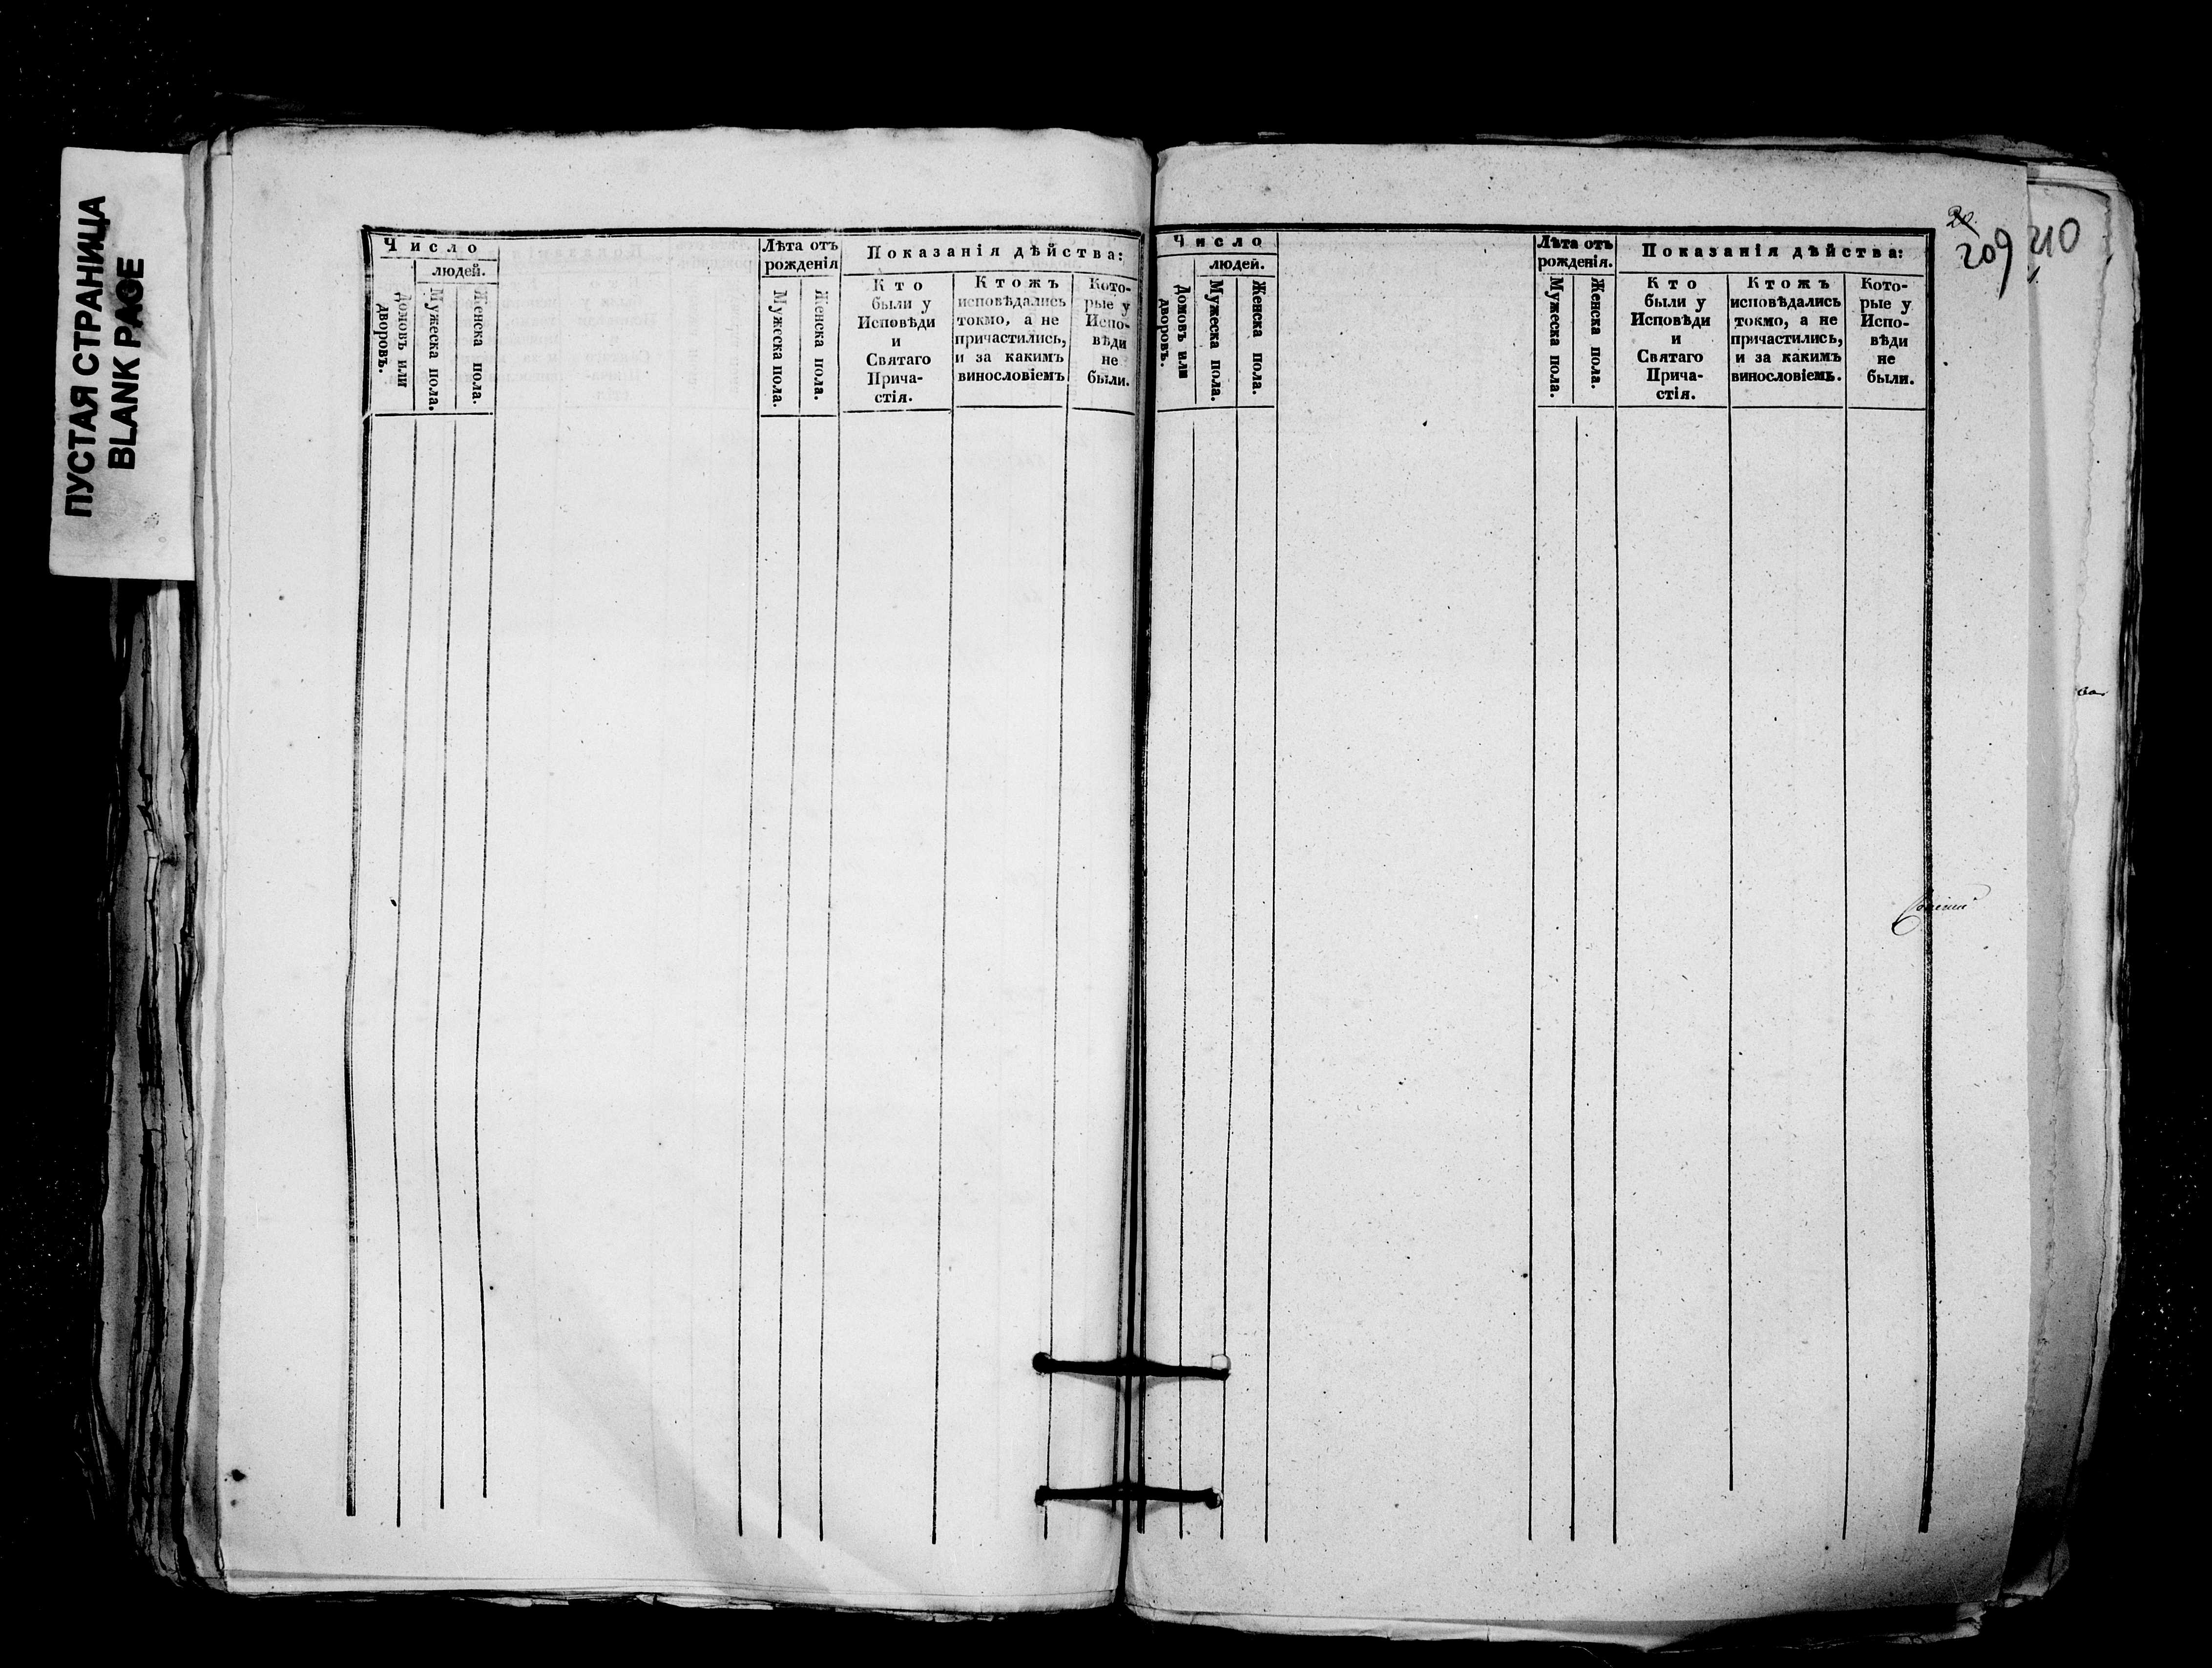 ПУСТАЯ СТРАНИЦА
BLANK PAGE
Число
людей.
Домовъ или дворовъ.
Мужеска пола.
Женска пола.
Лѣта отъ
рожденія
Мужеска пола.
Женска пола.
Показанія дѣйства:
Кто
были у
Исповѣди
и
Святаго
Прича-
стія.
Ктожъ
исповѣдались
токмо, а не
причастились,
и за какимъ
винословіемъ
Кото-
рые у
Испо-
вѣди
не
были.
Число
людей.
Домовъ или дворовъ.
Мужеска пола.
Женска пола.
Лѣта отъ
рожденія.
Мужеска пола.
Женска пола.
Показанія дѣйства:
Кто
были у
Исповѣди
и
Святаго
Прича-
стія.
Ктожъ
исповѣдались
токмо, а не
причастились,
и за какимъ
винословіемъ.
Кото-
рые у
Испо-
вѣди
не
были.
209
210